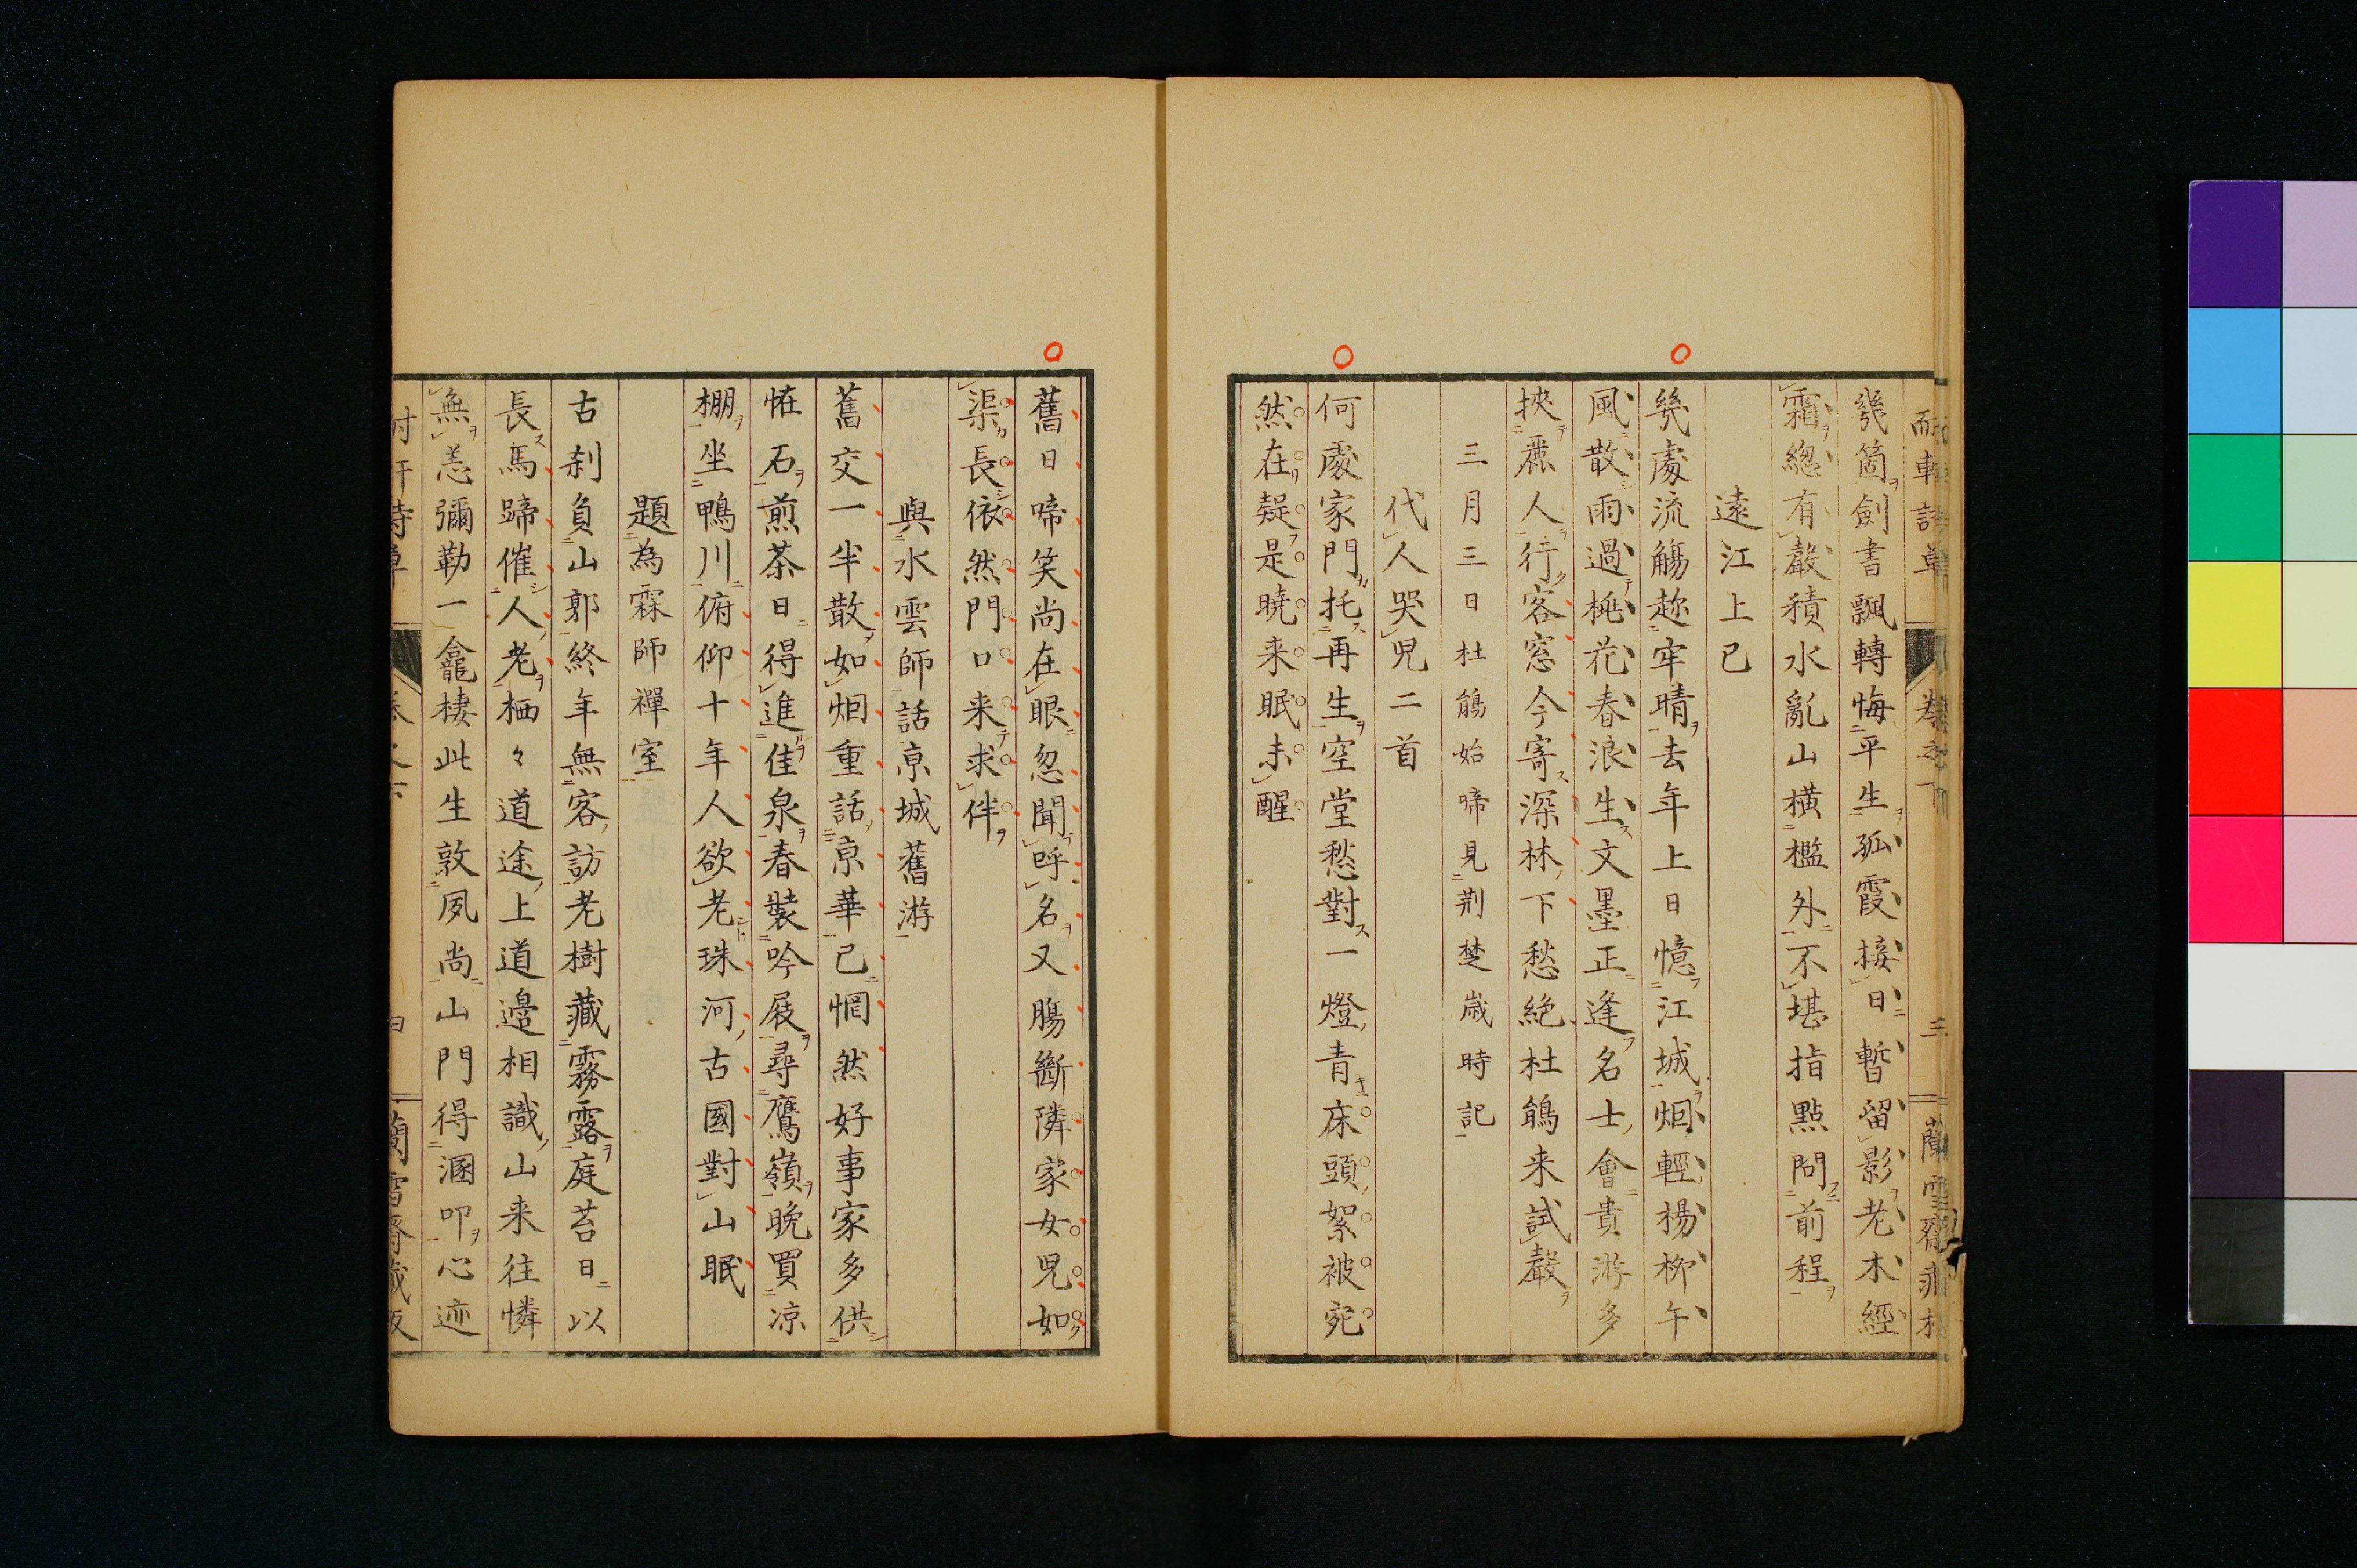 幾箇劍書飄轉悔平生孤霞接日暫留影老木經
霜緫有聲積水亂山橫檻外不堪指點問前程
遠江上巳
幾處流觴趂牢晴去年上日憶江城烟輕楊柳午
風散雨過桃花春浪生文墨正逢名士會貴游多
挾麗人行客窓今寄深林下愁絶杜鵑来試聲
三月三日杜鵑始啼見荆楚歲時記
代人哭兒二首
何處家門托再生空堂愁對一燈青床頭絮被宛
然在疑是曉来眠未醒
舊日啼笑尚在眼忽聞呼名又腸斷隣家女児如
渠長依然門口来求伴
與水雲師話京城舊游
舊交一半散如烟重話京華已惘然好事家多供
恠石煎茶日得進佳泉春裝吟屐尋鷹嶺晩買凉
棚坐鴨川俯仰十年人欲老珠河古國對山眠
題為霖師禪室
古刹負山郭終年無客訪老樹藏霧露庭苔日以
長馬蹄催人老栖々道途上道邉相識山来往憐
無恙彌勒一龕棲此生敦夙尚山門得溷叩心迹